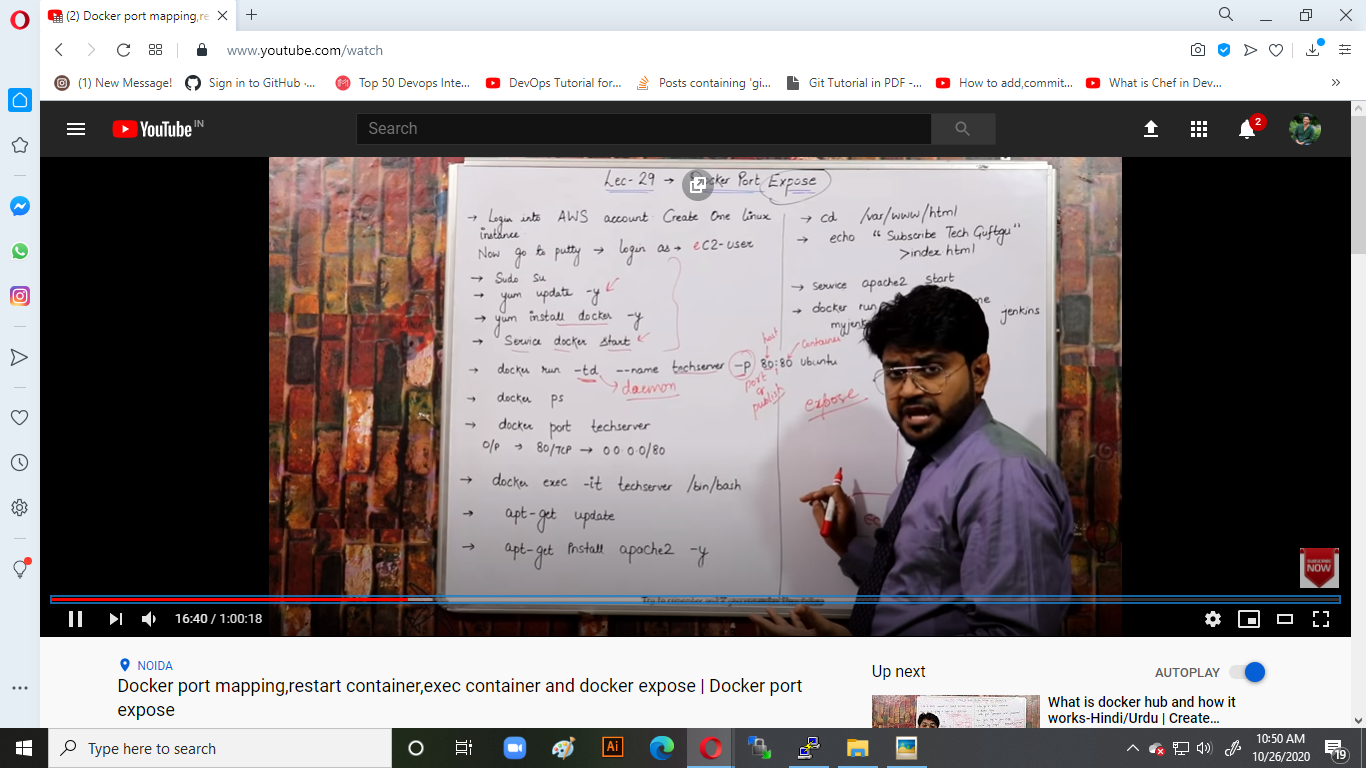 (2) Docker port mapping,re
www.youtube.com/watch
(1) New Message!
Sign in to GitHub ·...
Top 50 Devops Inte...
DevOps Tutorial for...
Posts containing 'gi...
Git Tutorial in PDF -...
How to add,commit...
What is Chef in Dev...
»
YouTube IN
Search
2
Lec-29 → Docker Port Expose
→ Login into AWS account. Create One linux
instance.
Now go to putty → login as → eC2-user
→ Sudo su
→ yum update -y
→ yum install docker -y
→ Service docker start
→ docker run -td --name techserver -p 80:80 ubuntu
host
container
daemon
port
or
publish
expose
→ docker ps
→ docker port techserver
O/P → 80/TCP → 0.0.0.0/80
→ docker exec -it techserver /bin/bash
→ apt-get update
→ apt-get install apache2 -y
→ cd /var/www/html
→ echo "Subscribe Tech Guftgu"
>index.html
→ service apache2 start
→ docker run
jenkins
SUBSCRIBE
NOW
16:40 / 1:00:18
NOIDA
Docker port mapping,restart container,exec container and docker expose | Docker port
expose
Up next
AUTOPLAY
What is docker hub and how it
works-Hindi/Urdu | Create...
Type here to search
Ai
10:50 AM
10/26/2020
19